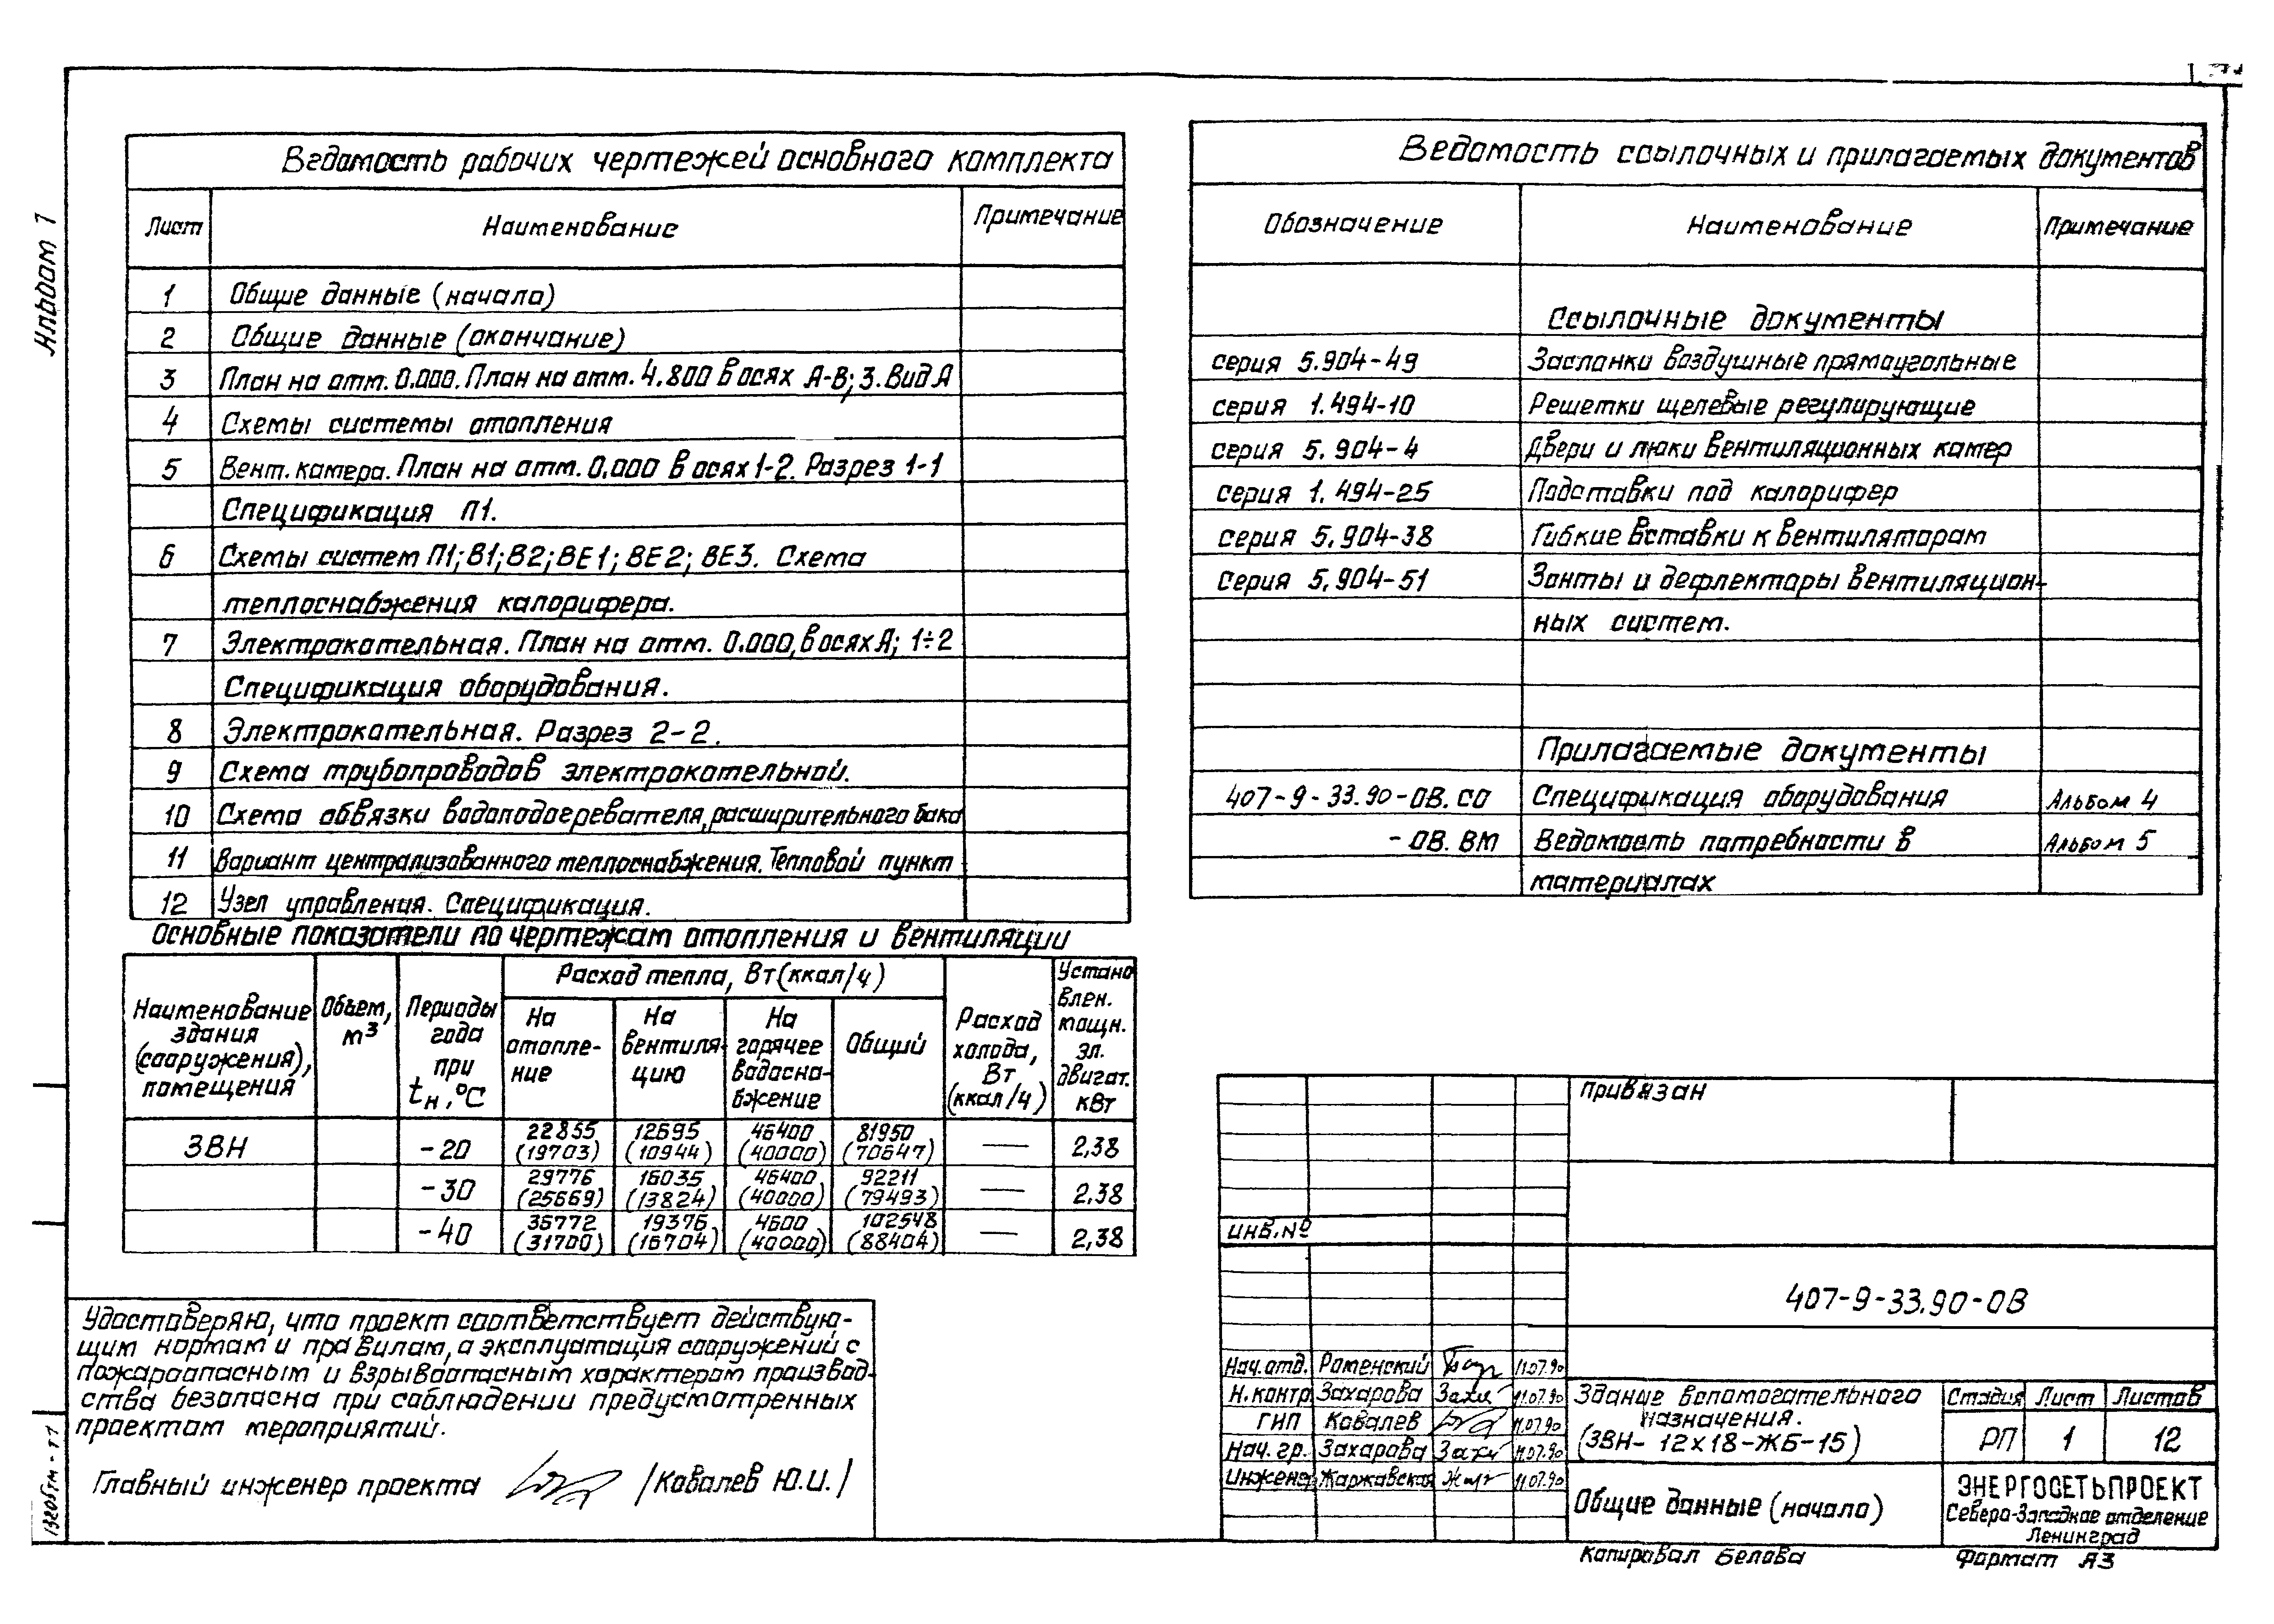 Альбом 1
Ведомость рабочих чертежей основного комплекта
Лист Наименование Примечание
1 Общие данные (начало)
2 Общие данные (окончание)
3 План на отм. 0.000. План на отм. 4.800 в осях А-В; 3. Вид А
4 Схемы системы отопления
5 Вент. камера. План на отм. 0.000 в осях 1-2. Разрез 1-1
Спецификация П1.
6 Схемы систем П1; В1; В2; ВЕ1; ВЕ2; ВЕ3. Схема
теплоснабжения калорифера.
7 Электрокотельная. План на отм. 0.000, в осях А; 1÷2
Спецификация оборудования.
8 Электрокотельная. Разрез 2-2.
9 Схема трубопроводов электрокотельной.
10 Схема обвязки водоподогревателя, расширительного бака
11 Вариант централизованного теплоснабжения. Тепловой пункт
12 Узел управления. Спецификация.
Ведомость ссылочных и прилагаемых документов
Обозначение Наименование Примечание
Ссылочные документы
серия 5.904-49 Заслонки воздушные прямоугольные
серия 1.494-10 Решетки щелевые регулирующие
серия 5.904-4 Двери и люки вентиляционных камер
серия 1.494-25 Подставки под калорифер
серия 5.904-38 Гибкие вставки к вентиляторам
серия 5.904-51 Зонты и дефлекторы вентиляцион-
ных систем.
Прилагаемые документы
407-9-33.90-ОВ.СО Спецификация оборудования Альбом 4
-ОВ.ВМ Ведомость потребности в Альбом 5
материалах
Основные показатели по чертежам отопления и вентиляции
Наименование здания (сооружения), помещения
Объем, м³
Периоды года при tн, °С
Расход тепла, Вт (ккал/ч)
На отопле-
ние
На вентиля-
цию
На горячее водосна-
бжение
Общий
Расход холода, Вт (ккал/ч)
Устано
влен. мощн. эл. двигат. кВт
ЗВН -20 22855 (19703) 12695 (10944) 46400 (40000) 81950 (70647) — 2,38
-30 29776 (25669) 16035 (13824) 46400 (40000) 92211 (79493) — 2,38
-40 36772 (31700) 19376 (16704) 4600 (40000) 102548 (88404) — 2,38
Удостоверяю, что проект соответствует действую-
щим нормам и правилам, а эксплуатация сооружений с
пожароопасным и взрывоопасным характером производ-
ства безопасна при соблюдении предусмотренных
проектом мероприятий.
Главный инженер проекта /Ковалев Ю.И./
13205тм-т1
Привязан
Инв.№
407-9-33.90-ОВ
Нач.отд. Роменский 11.07.90
Н.контр. Захарова 11.07.90
ГИП Ковалев 11.07.90
Нач.гр. Захарова 11.07.90
Инженер Жаржавская 11.07.90
Здание вспомогательного
назначения.
(ЗВН-12х18-ЖБ-15)
Стадия Лист Листов
РП 1 12
Общие данные (начало)
ЭНЕРГОСЕТЬПРОЕКТ
Северо-Западное отделение
Ленинград
Копировал Белова Формат А3